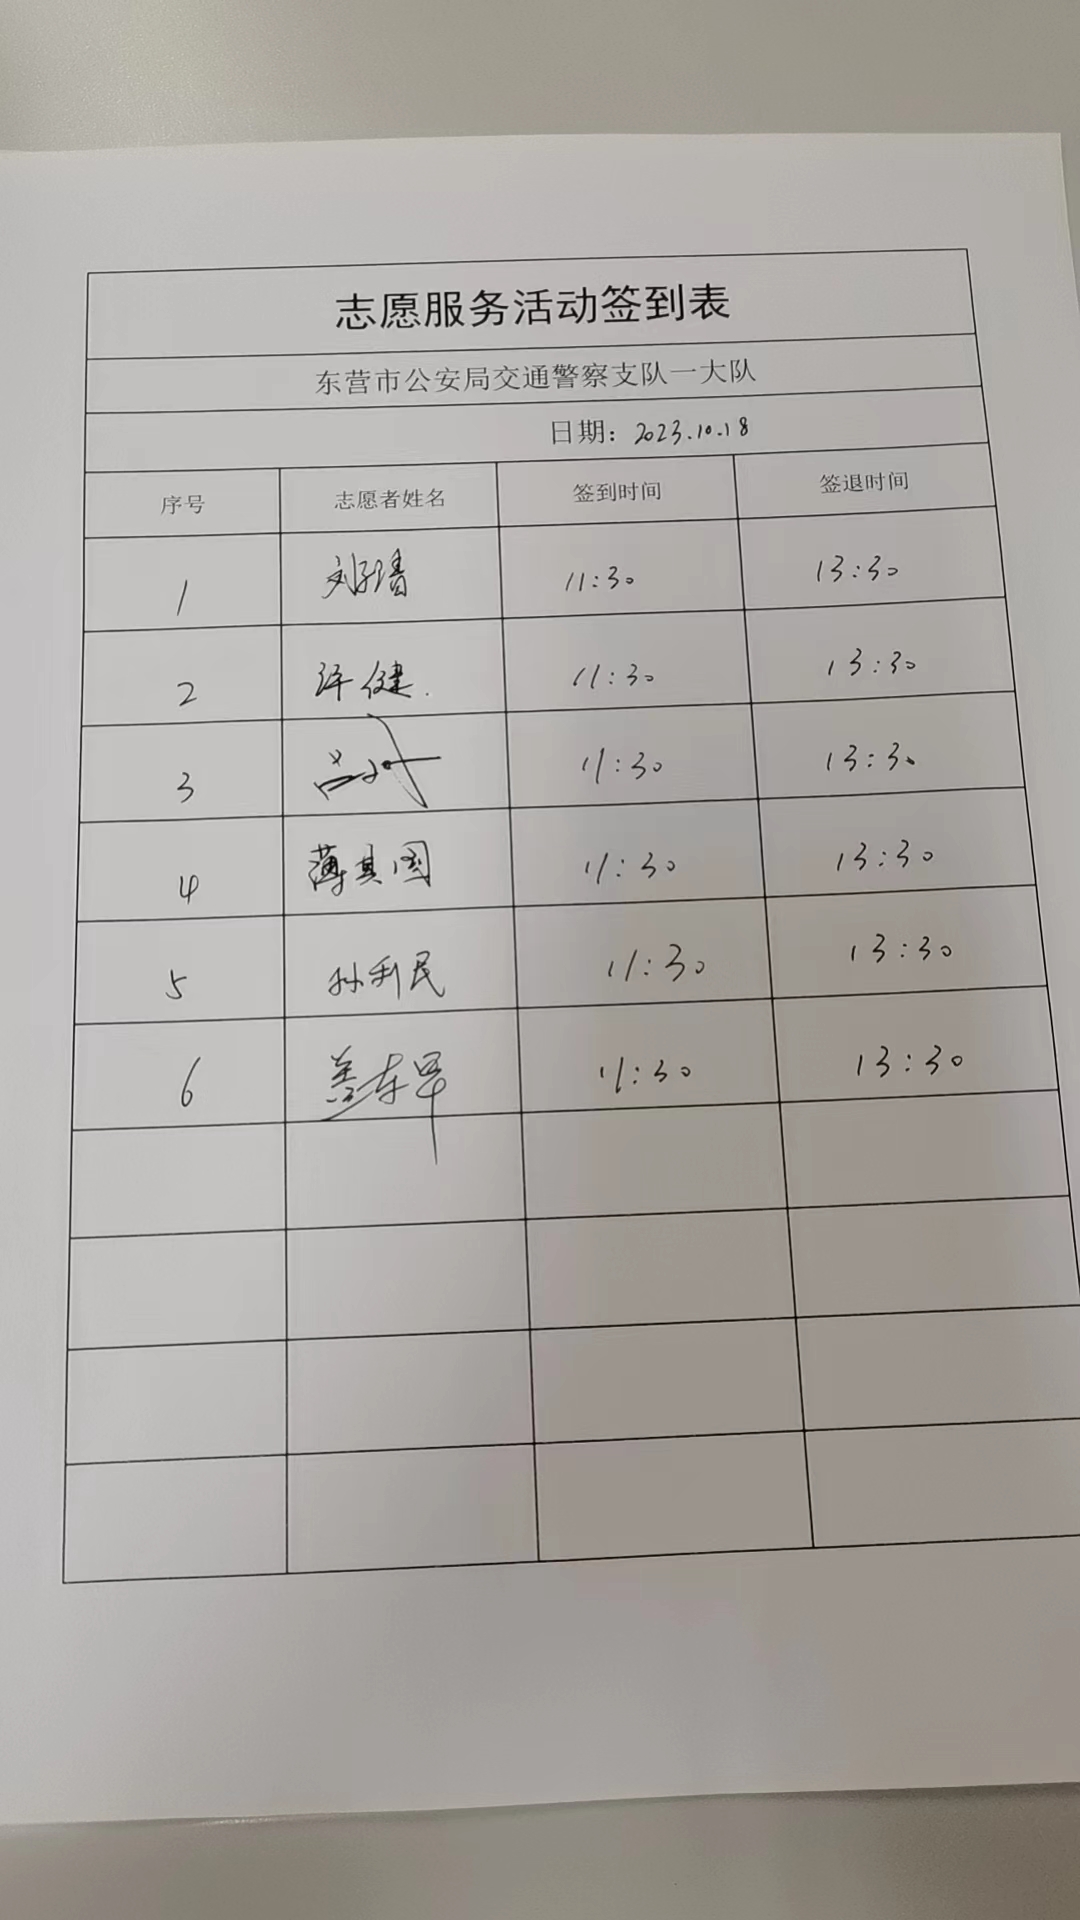 志愿服务活动签到表
东营市公安局交通警察支队一大队
日期：2023.10.18
序号 志愿者姓名 签到时间 签退时间
1 11:30 13:30
2 许健. 11:30 13:30
3 11:30 13:30
4 薄其国 11:30 13:30
5 孙利民 11:30 13:30
6 11:30 13:30